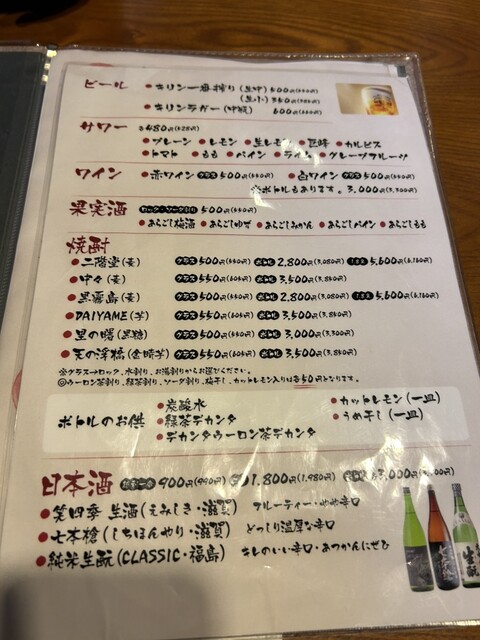 ビール ●キリン一番搾り(生中)600円(660円)
(生小)350円(385円)
●キリンラガー(中瓶) 600円(660円)
サワー 各480円(528円)
●プレーン ●レモン ●生レモン ●巨峰 ●カルピス
●トマト ●もも ●パイン ●ライム ●グレープフルーツ
ワイン ●赤ワイン グラス 500円(550円) ●白ワイン グラス 500円(550円)
※ボトルもあります。3,000円(3,300円)
果実酒 ロック・ソーダ割り 500円(550円)
●あらごし梅酒 ●あらごしゆず ●あらごしみかん ●あらごしパイン ●あらごしもも
焼酎
●二階堂(麦) グラス 500円(550円) ボトル 2,800円(3,080円) 5,600円(6,160円)
●中々(麦) グラス 550円(605円) ボトル 3,500円(3,850円)
●黒霧島(芋) グラス 500円(550円) ボトル 2,800円(3,080円) 5,600円(6,160円)
●DAIYAME(芋) グラス 550円(605円) ボトル 3,500円(3,850円)
●里の曙(黒糖) グラス 500円(550円) ボトル 3,000円(3,300円)
●天の浮橋(金時芋) グラス 550円(605円) ボトル 3,500円(3,850円)
※グラス→ロック、水割り、お湯割りからお選びください。
◎ウーロン茶割り、緑茶割り、ソーダ割り、梅干し、カットレモン入りは各50円となります。
ボトルのお供
●炭酸水
●緑茶デカンタ
●デカンタウーロン茶デカンタ
●カットレモン(一皿)
●うめ干し(一皿)
日本酒 900円(990円) 1,800円(1,980円) 3,000円(3,300円)
●笑四季 生酒(えみしき・滋賀) フルーティー・やや辛口
●七本槍(しちほんやり・滋賀) どっしり温厚な辛口
●純米生酛(CLASSIC・福島) キレのいい辛口・あつかんにぜひ